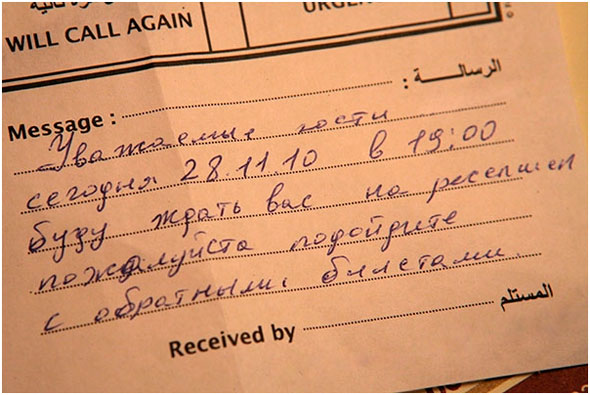 WILL CALL AGAIN
URGENT
Message : الرسالـــة :
Уважаемые гости
сегодня 28.11.10 в 19:00
буду ждать вас на ресепшен
пожалуйста подойдите
с обратными билетами.
Received by المستلم